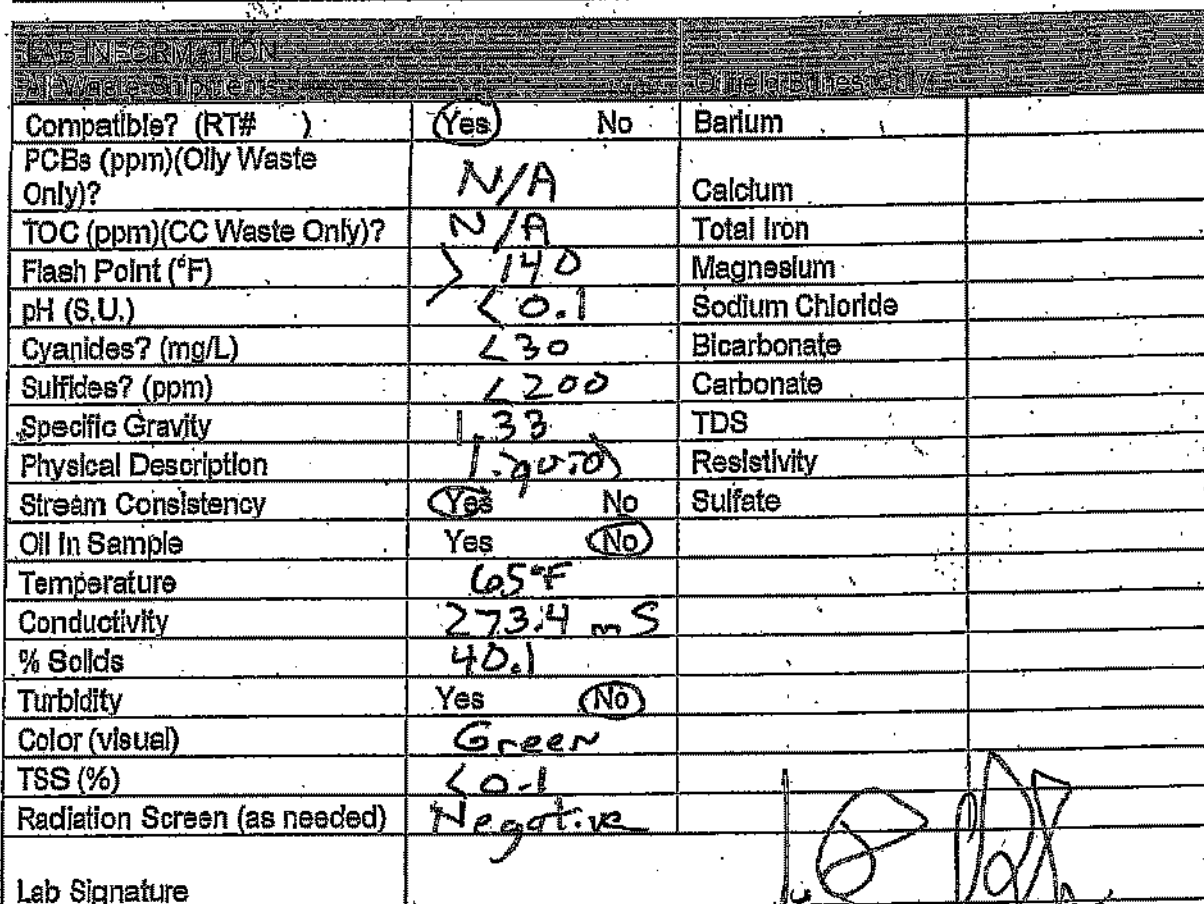 LAB INFORMATION
All Waste Shipments Oilfield Brines Only
Compatible? (RT# ) Yes No Barium
PCBs (ppm)(Oily Waste
Only)? N/A Calcium
TOC (ppm)(CC Waste Only)? N/A Total Iron
Flash Point (°F) > 140 Magnesium
pH (S.U.) < 0.1 Sodium Chloride
Cyanides? (mg/L) <30 Bicarbonate
Sulfides? (ppm) <200 Carbonate
Specific Gravity 1.33 TDS
Physical Description Liquid Resistivity
Stream Consistency Yes No Sulfate
Oil In Sample Yes No
Temperature 65°F
Conductivity 273.4 mS
% Solids 40.1
Turbidity Yes No
Color (visual) Green
TSS (%) <0.1
Radiation Screen (as needed) Negative
Lab Signature